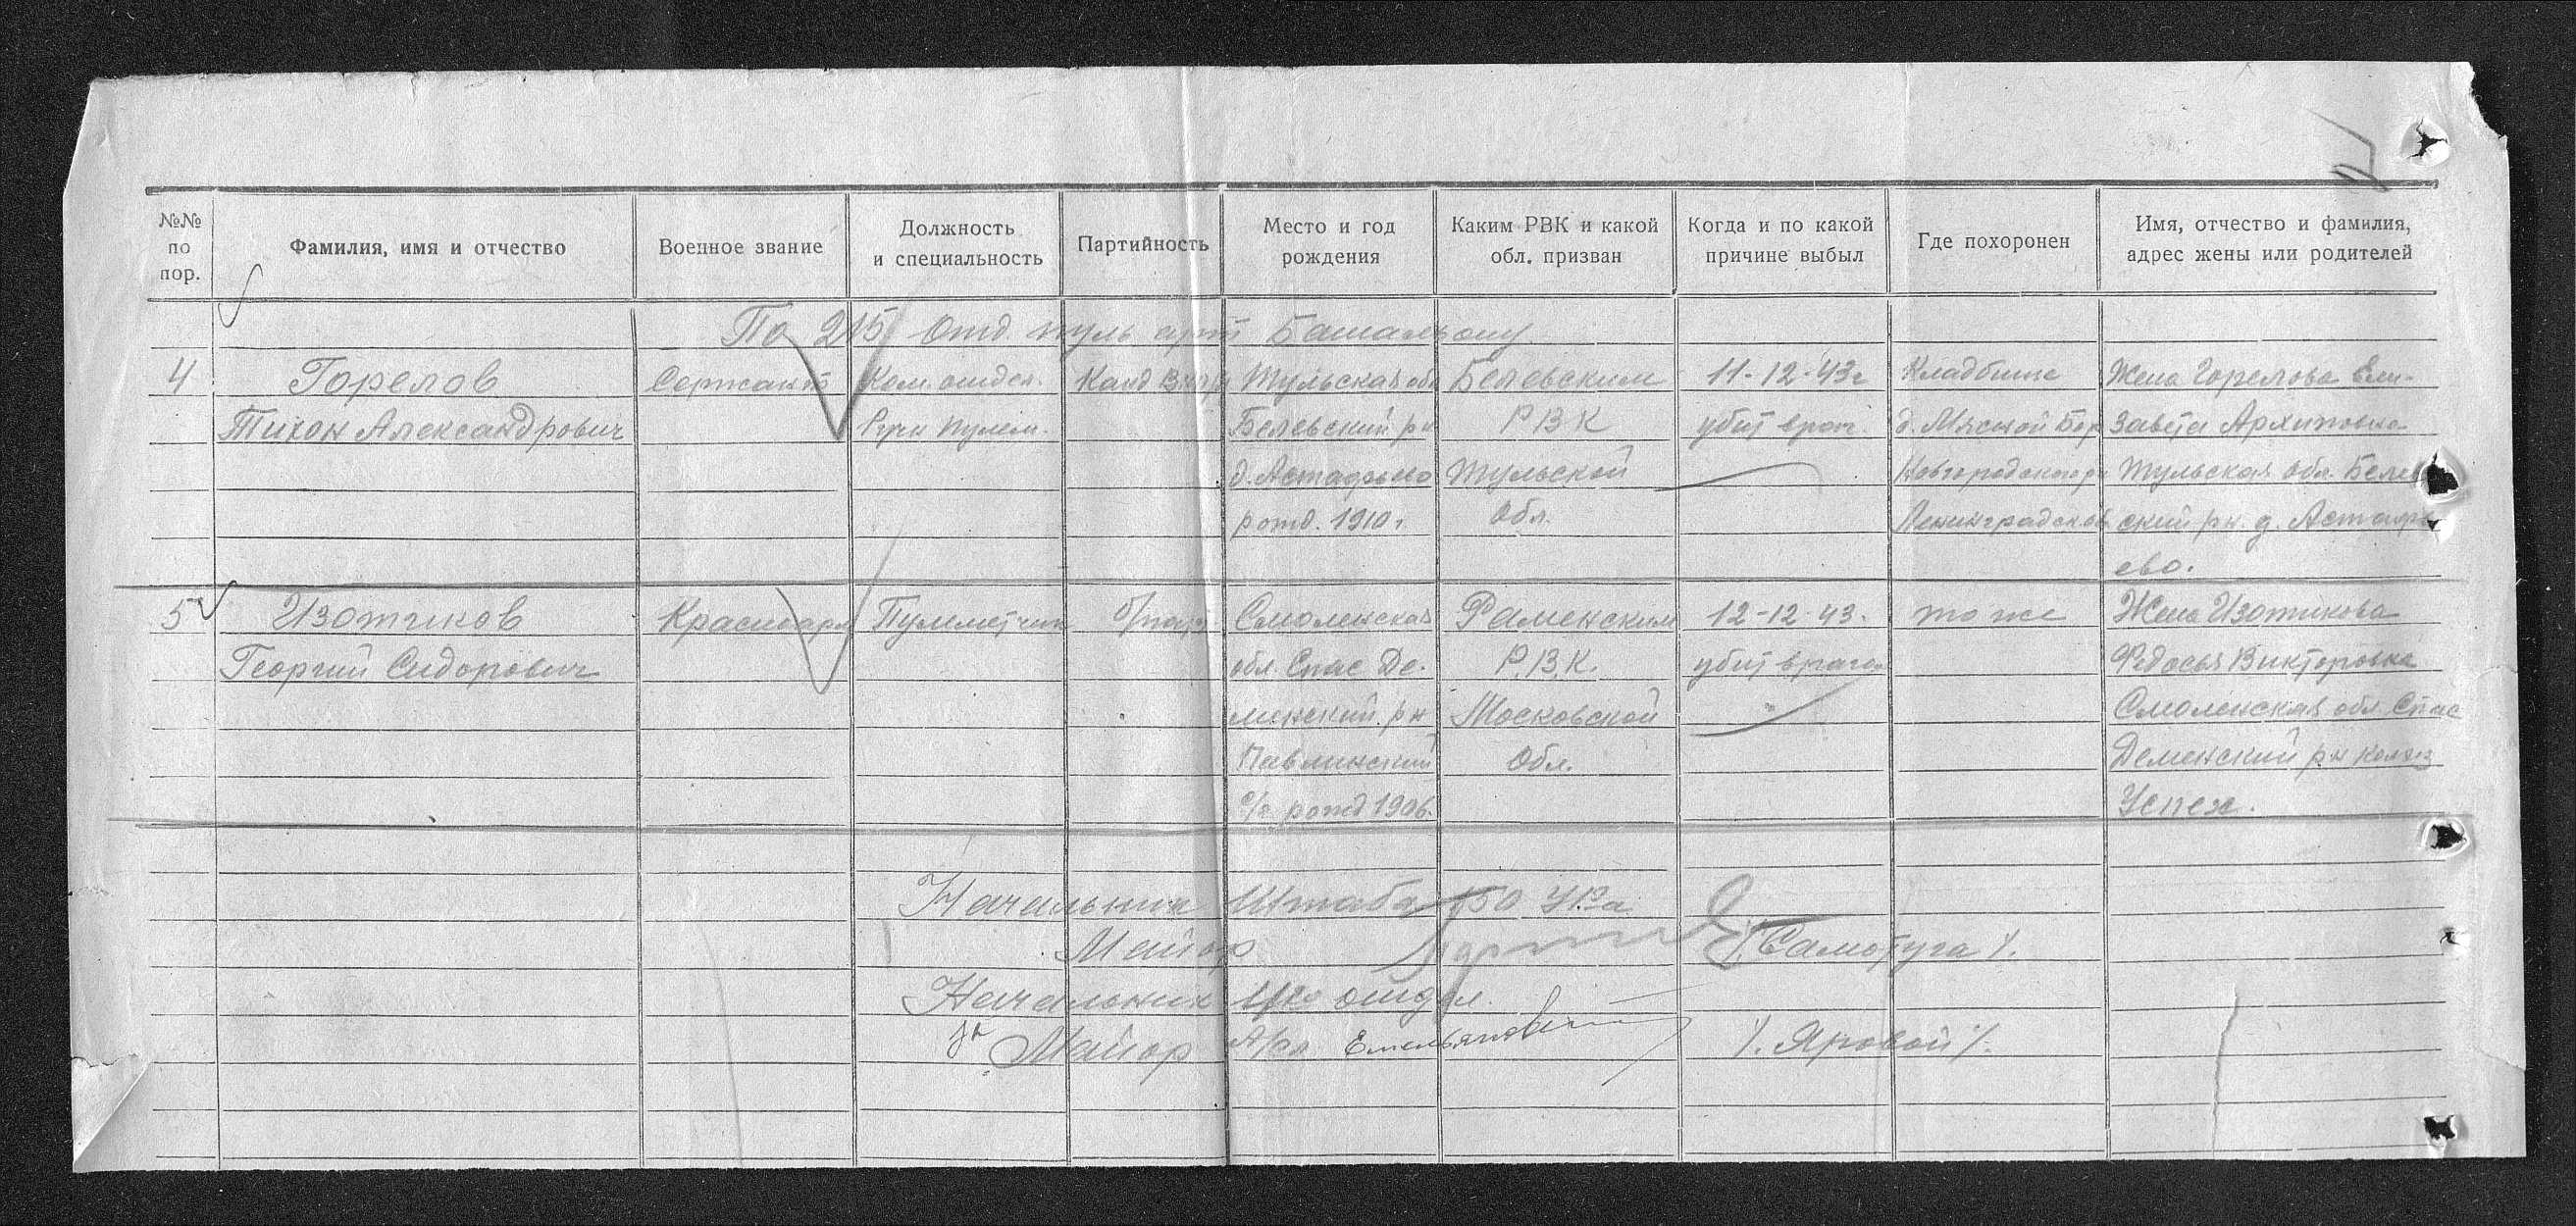 №№ по пор.
Фамилия, имя и отчество
Военное звание
Должность и специальность
Партийность
Место и год рождения
Каким РВК и какой обл. призван
Когда и по какой причине выбыл
Где похоронен
Имя, отчество и фамилия, адрес жены или родителей
По 215 Отд пуль арт Батальону
4
Горелов
Тихон Александрович
Сержант
Ком. отдел.
Руч пулем.
Канд
Тульская обл
Белевский р-н
д. Астафьево
рожд. 1910 г
Белевским
РВК
Тульской
Обл.
11-12-43г
убит враг.
Кладбище
д. Мясной Бор
Новгородского р
Ленинградской
Жена Горелова Ели-
завета Архиповна
Тульская обл. Белев
ский р-н. д. Астафь
ево.
5
Изотиков
Георгий Сидорович
Красноарм
Пулеметчик
б/парт
Смоленская
обл. Спас Де-
менский р-н
Павлинский
с/с рожд 1906.
Раменским
Р.В.К.
Московской
Обл.
12-12-43.
убит врагом
"
то же
Жена Изотикова
Федосья Викторовна
Смоленская обл. Спас
Деменский р-н колхоз
Успех.
Начальник Штаба 150 УРа
Майор /. Самотуга /.
Начальник 4го отдел.
за Майор Емельянов /. Яровой /.